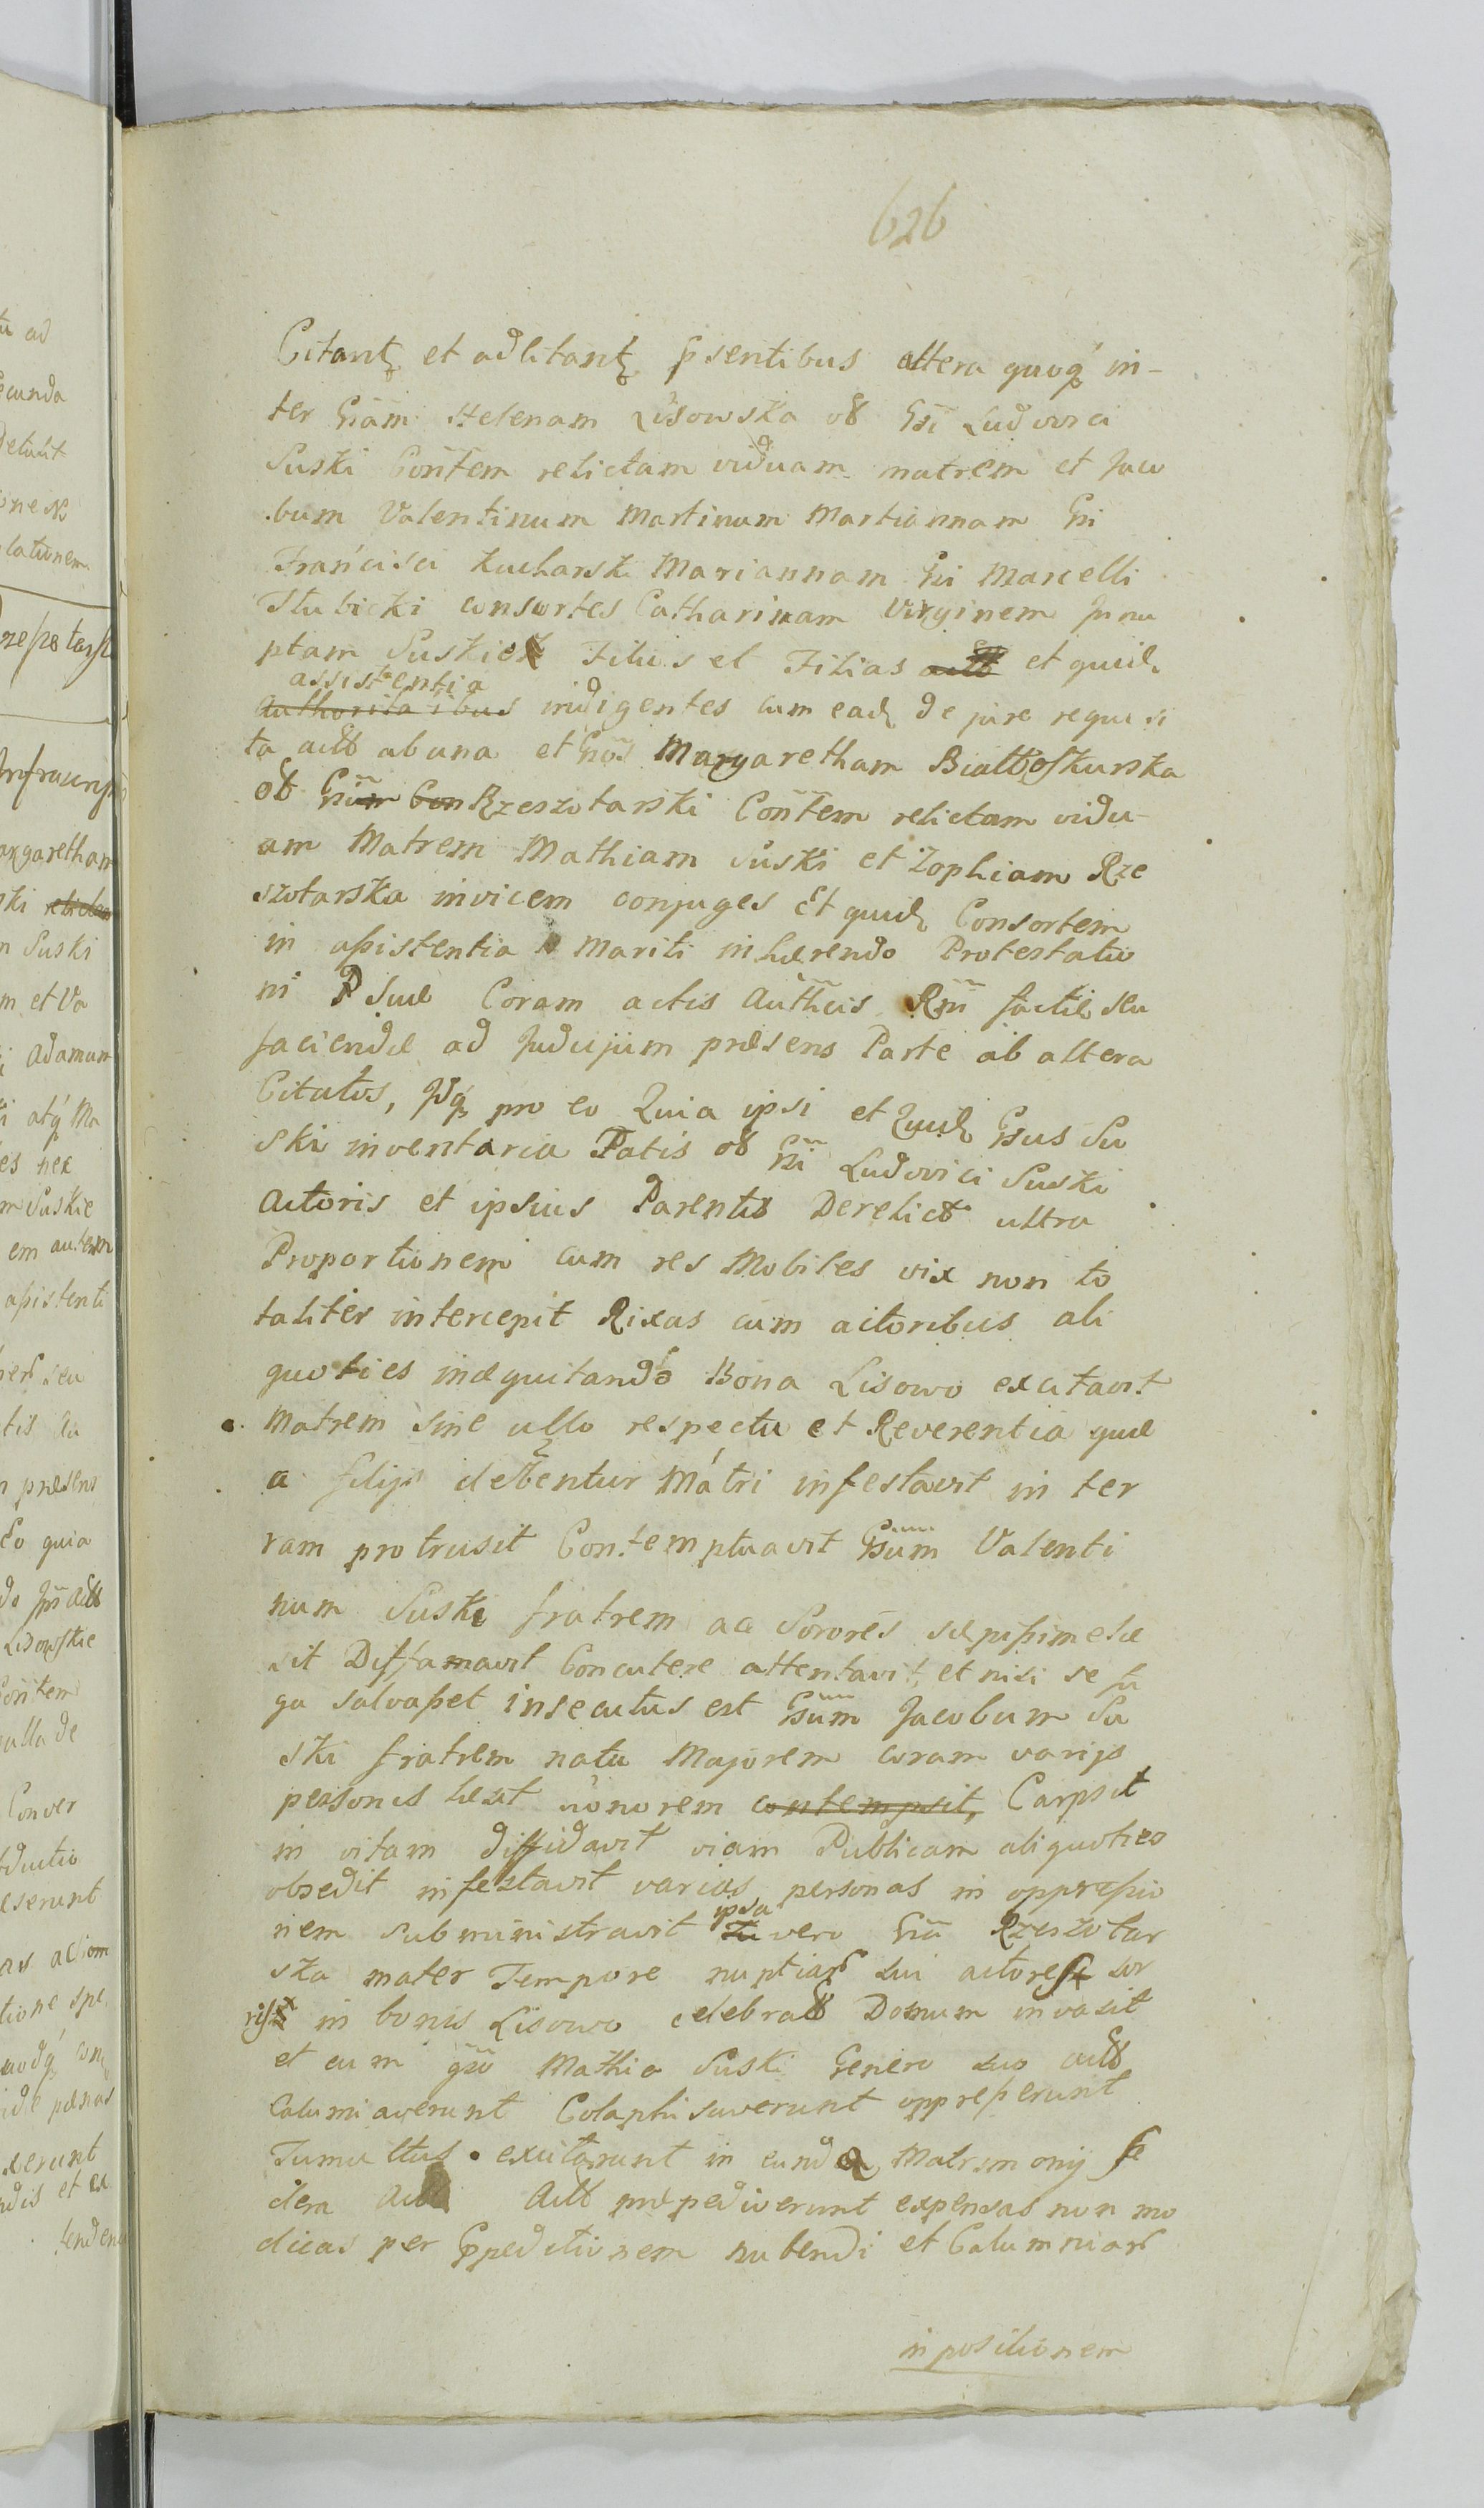 626
Citant et adcitant psentibus altera quoq in-
ter Gnam Helenam Lisowska ob Gni Ludovici
Suski Contem relictam viduam matrem et Jaco
bum Valentinum Martinum Martiannam Gni
Francisci Kucharski Mariannam Gni Marcelli
Stubicki consortes Catharinam Virginem Innu
ptam Suskie Filios et Filias et quid
assistentia
authoritatibus indigentes cum ead de jure requisi
ta actt ab una et Gnos Margaretham Bialboskurska
ob Gnum Con Rzeszotarski Contem relictam vidu-
am Matrem Mathiam Suski et Zophiam Rze
szotarska invicem conjuges Et quid Consortem
in assistentia Mariti inhærendo Protestatio
ni P suæ Coram actis Authcis Rni factæ seu
faciendæ ad Judicjum præsens Parte ab altera
Citatos, Idq pro eo Quia ipsi et quid Gnsus Su
ski inventaria Patis ob Gni Ludovici Suski
Actoris et ipsius Parentis Derelict ultra
Proportionem cum res Mobiles vix non to
taliter intercepit Rixas cum actoribus ali
quoties inæquitando Bona Lisowo excitavit
Matrem sine ullo respectu et Reverentia quæ
a filijs debentur Matri infestavit in ter
ram protrusit Contemptuavit Gnsum Valenti
num Suski fratrem ac Sorores sæpissime læ
sit Diffamavit Concutere attentavit, et nisi se fu
ga salvasset insecutus est Gnsum Jacobum Su
ski fratrem natu Majorem coram varijs
personis læsit honorem contempsit, Carpsit
in vitam diffidavit viam Publicam aliquoties
obsedit infestavit varias personas in oppressio
nem subministravit vero Gna Rzeszotar
ipsa
ska mater Tempore nuptiar sui actores sor
ris in bonis Lisowo celebratt Domum invasit
et cum gno Mathia Suski Genero suo actt
Calumiaverunt Colaphisaverunt oppresserunt
Tumultus excitarunt in eund Matrimonij fe
dera Actt præpediverunt expensas non mo
dicas per Expeditionem nubendi et Calumniar
in positionem